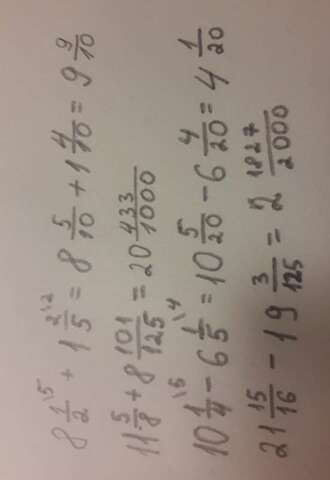 8 1/2 \5 + 1 2/5 \2 = 8 5/10 + 1 4/10 = 9 9/10
11 5/8 + 8 101/125 = 20 433/1000
10 1/4 \5 - 6 1/5 \4 = 10 5/20 - 6 4/20 = 4 1/20
21 15/16 - 19 3/125 = 2 1827/2000